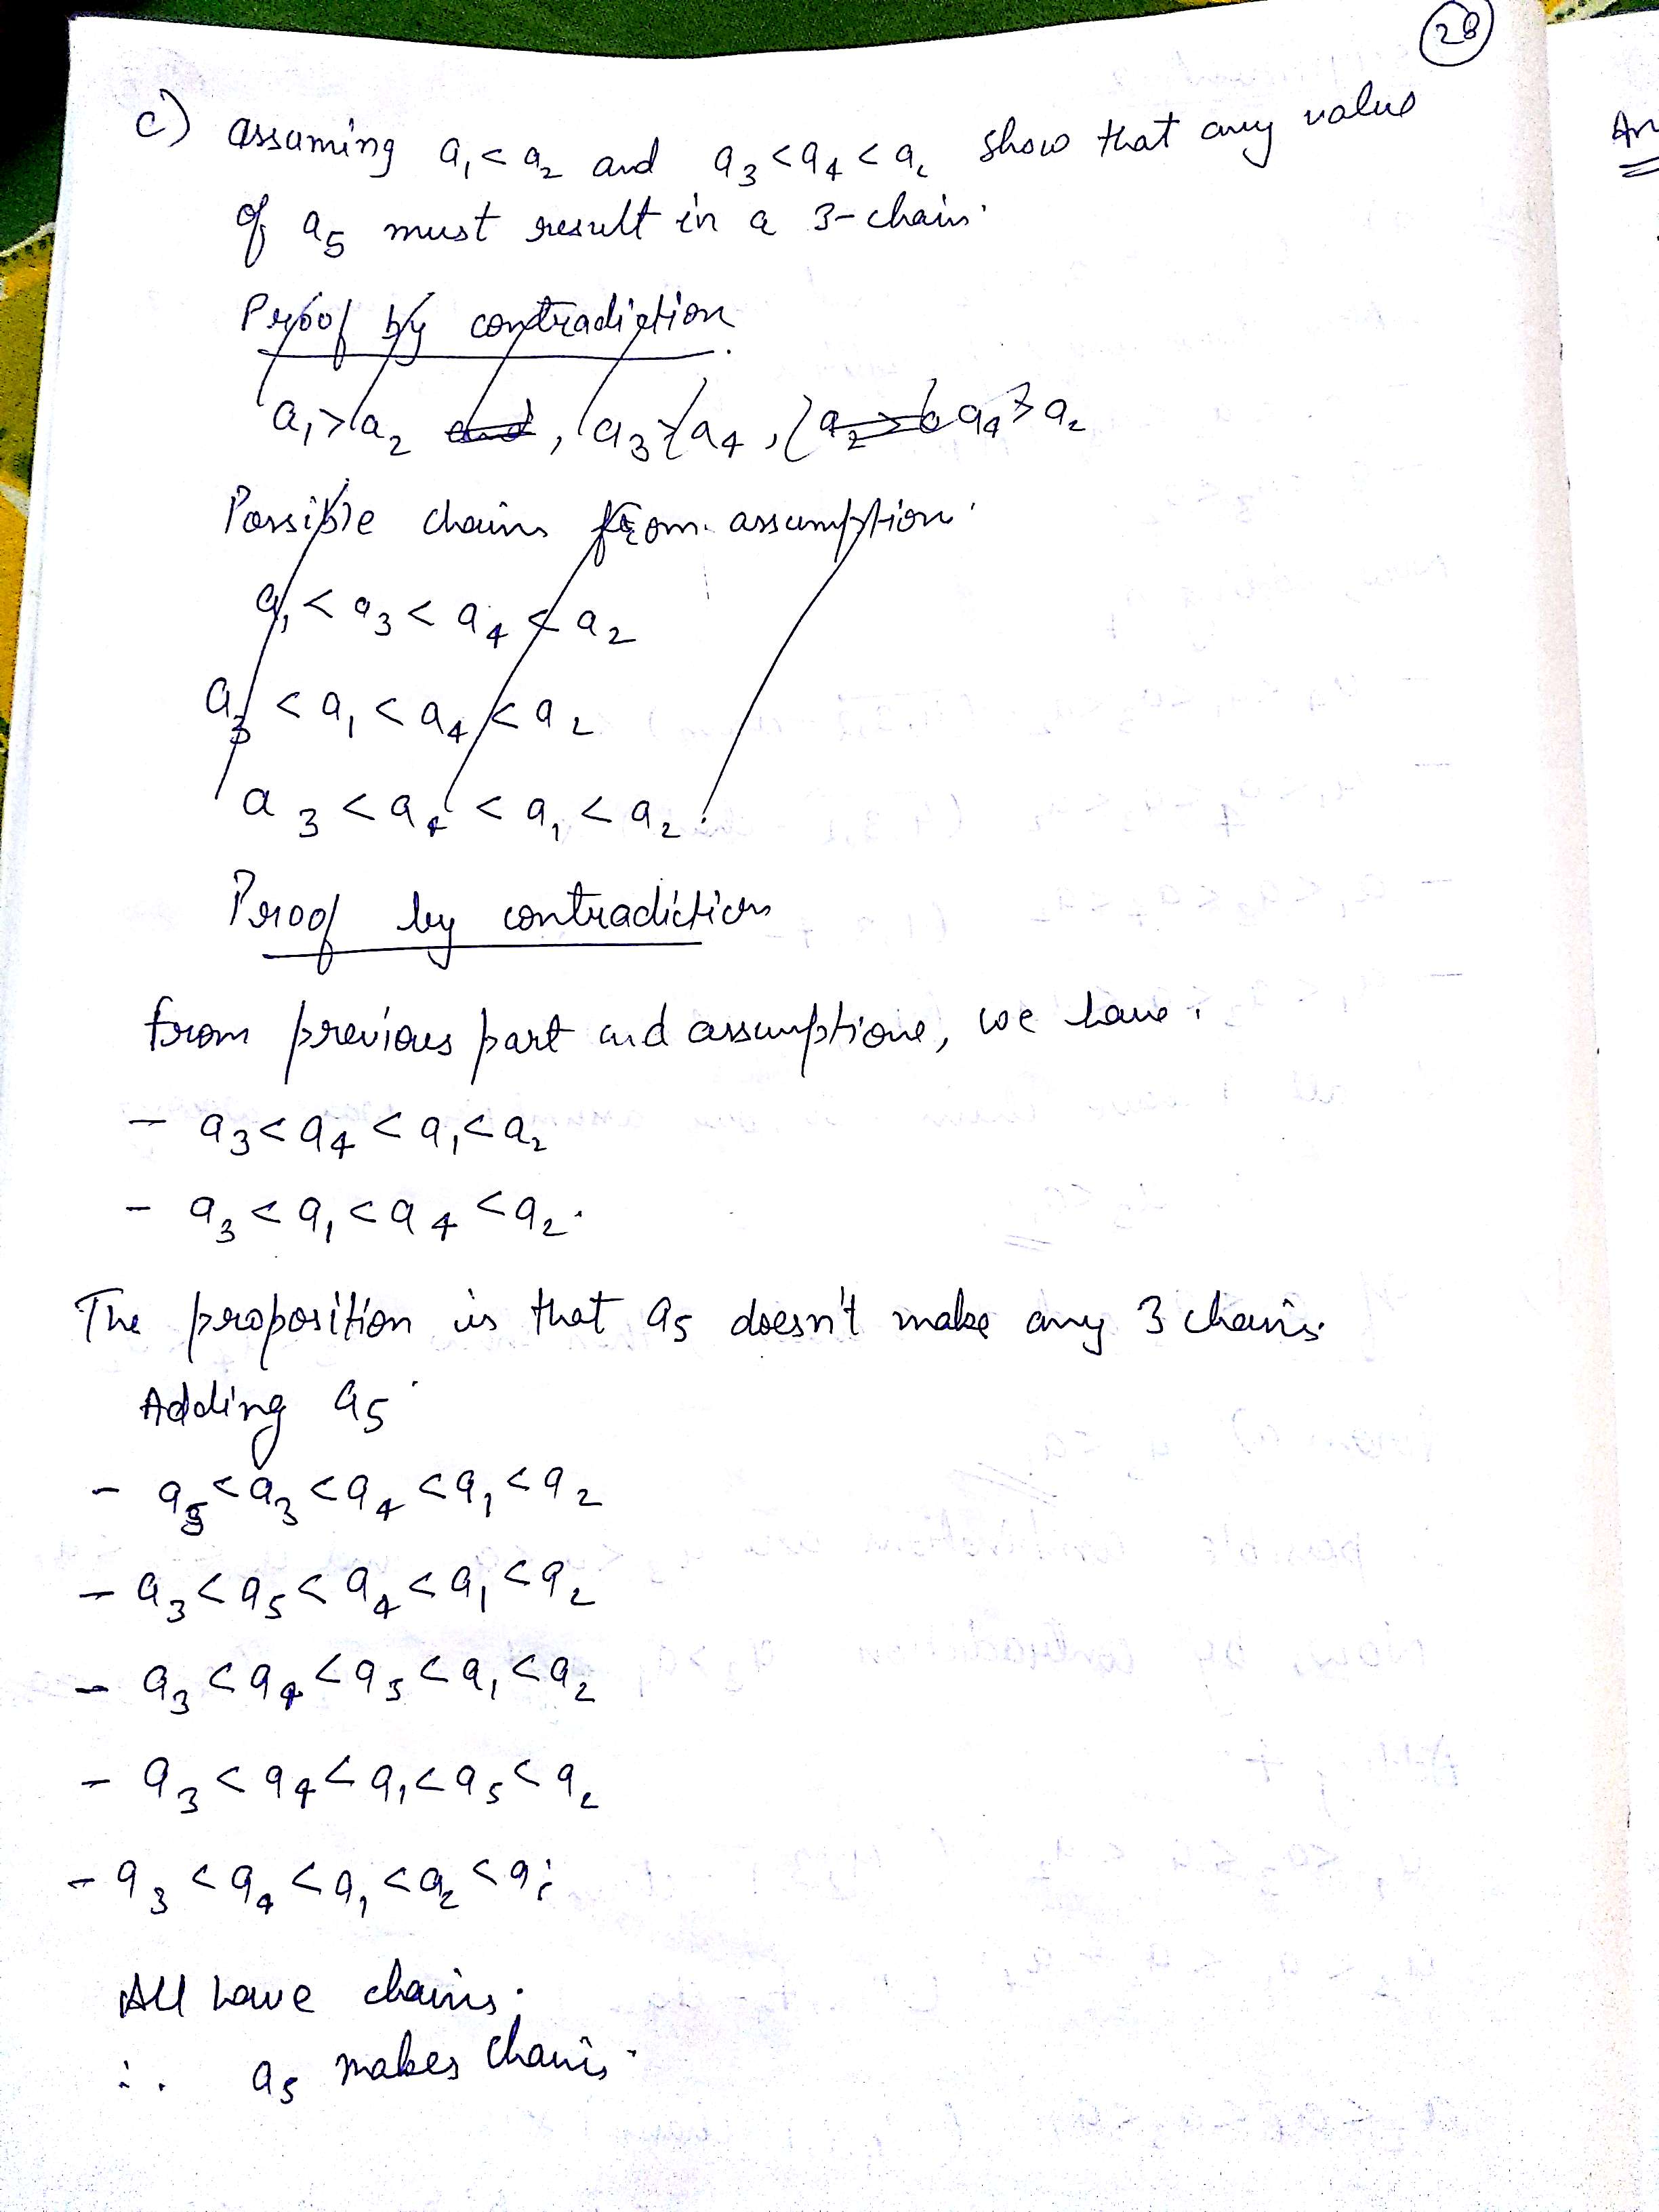 28
c) assuming a₁ < a₂ and a₃ < a₄ < a₂ show that any value
of a₅ must result in a 3-chain.
Proof by contradiction.
a₁ > a₂ and, a₃ > a₄, a₄ > a₂
Possible chains from assumption.
a₁ < a₃ < a₄ < a₂
a₃ < a₁ < a₄ < a₂
a₃ < a₄ < a₁ < a₂.
Proof by contradiction
from previous part and assumptions, we have.
- a₃ < a₄ < a₁ < a₂
- a₃ < a₁ < a₄ < a₂.
The proposition is that a₅ doesn't make any 3 chains.
Adding a₅
- a₅ < a₃ < a₄ < a₁ < a₂
- a₃ < a₅ < a₄ < a₁ < a₂
- a₃ < a₄ < a₅ < a₁ < a₂
- a₃ < a₄ < a₁ < a₅ < a₂
- a₃ < a₄ < a₁ < a₂ <
All have chains.
∴ a₅ makes chains.